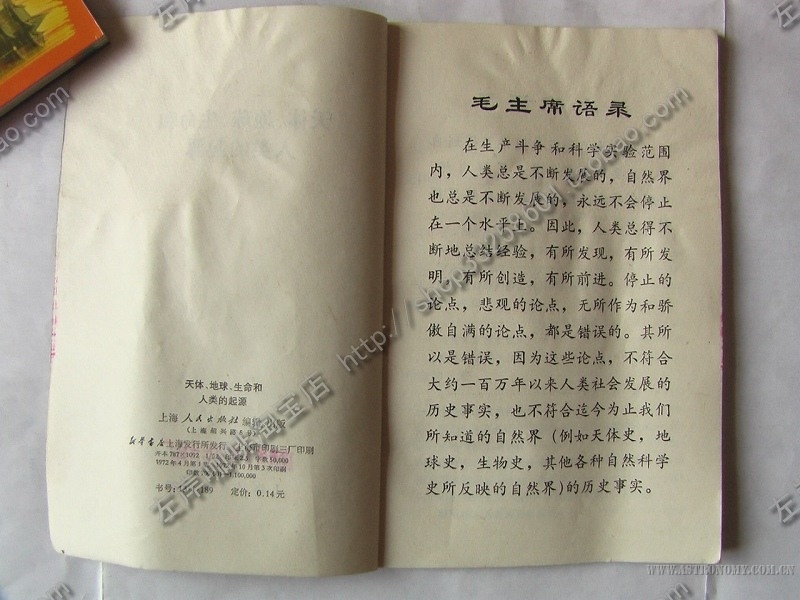 天体、地球、生命和
人类的起源
上海人民出版社
新华书店上海发行所发行
印刷三厂印刷
开本 787×1092
50,000
1972年4月第1
10月第3次印刷
100,000
定价：0.14元
毛主席语录
在生产斗争和科学实验范围
内，人类总是不断发展的，自然界
也总是不断发展的，永远不会停止
在一个水平上。因此，人类总得不
断地总结经验，有所发现，有所发
明，有所创造，有所前进。停止的
论点，悲观的论点，无所作为和骄
傲自满的论点，都是错误的。其所
以是错误，因为这些论点，不符合
大约一百万年以来人类社会发展的
历史事实，也不符合迄今为止我们
所知道的自然界（例如天体史，地
球史，生物史，其他各种自然科学
史所反映的自然界）的历史事实。
WWW.ASTRONOMY.COM.CN